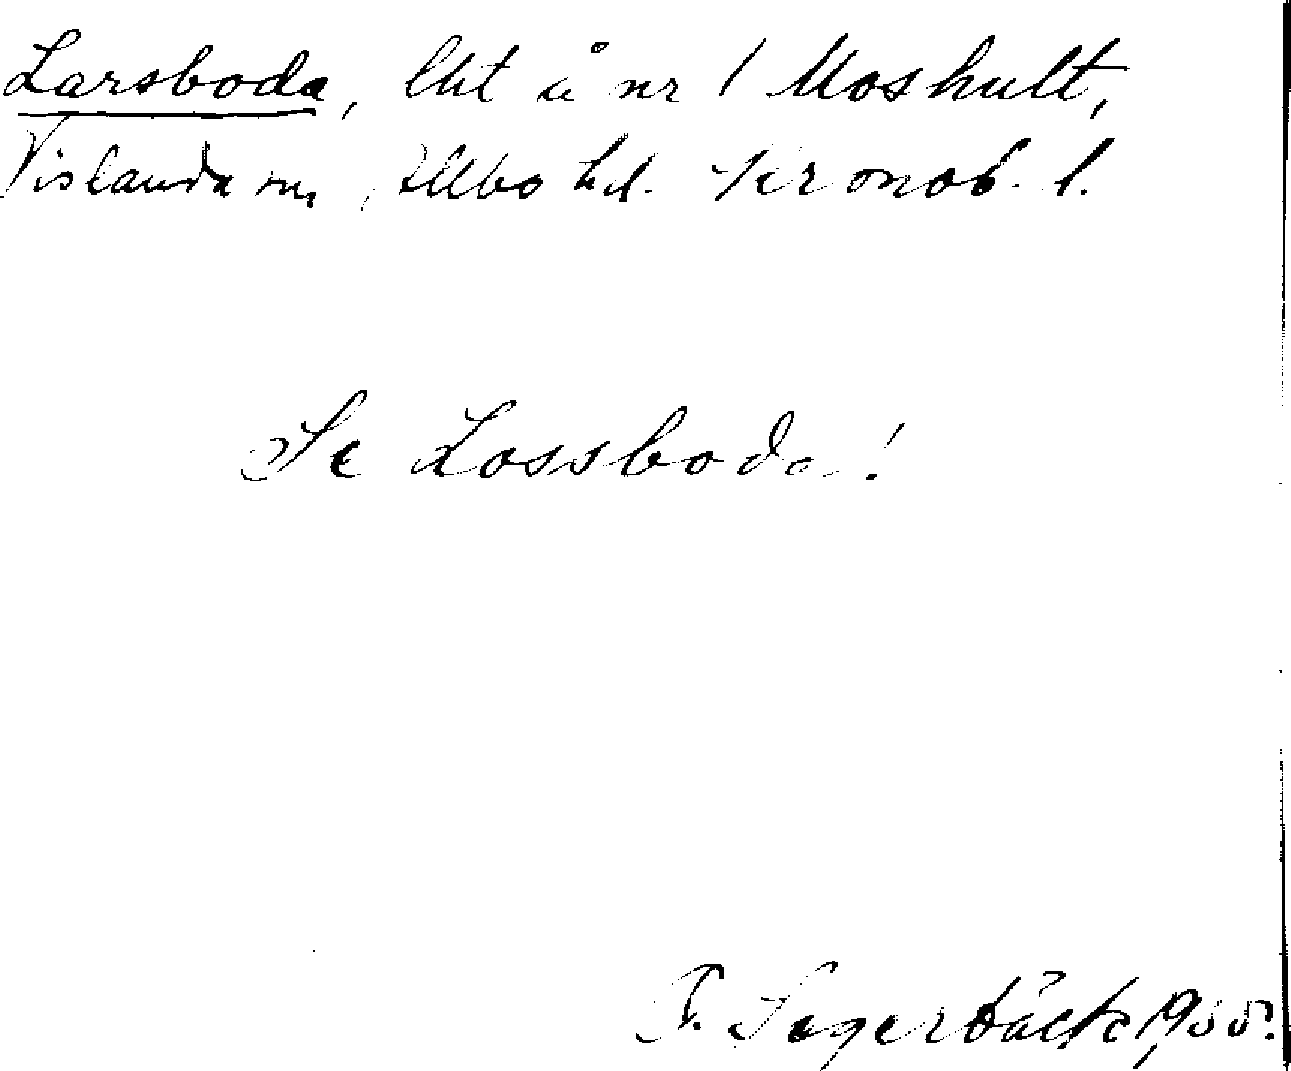 Larsboda, lht å nr 1 Moshult,
Vislanda sn, Allbo hd. Kronob. l.
Se Lossboda!
T. Sagerbäck 1935.